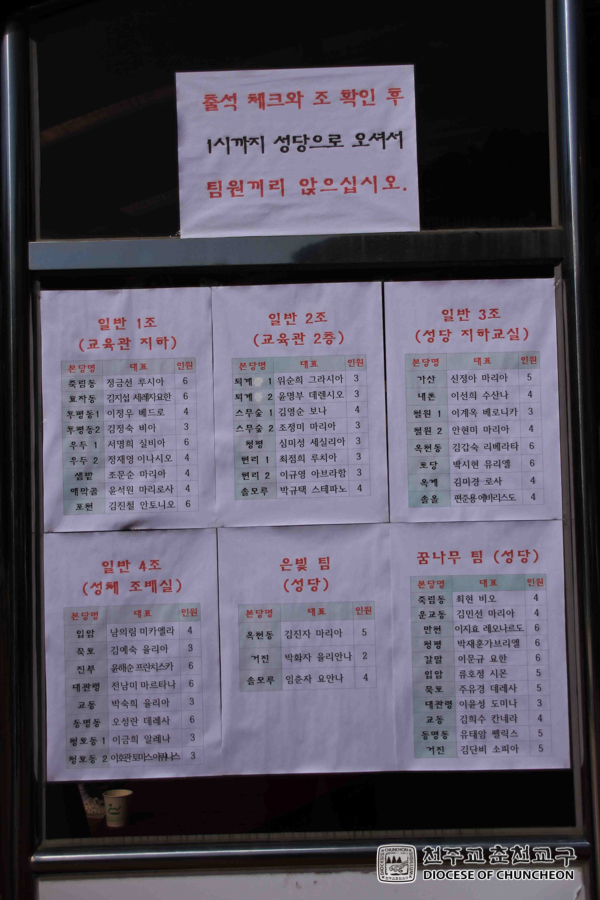 출석 체크와 조 확인 후
1시까지 성당으로 오셔서
팀원끼리 앉으십시오.
일반 1조
(교육관 지하)
본당명 대표 인원
죽림동 정금선 루시아 6
효자동 김지섭 세례자요한 6
후평동1 이정우 베드로 4
후평동2 김정숙 비아 3
우두 1 서명희 실비아 6
우두 2 정재영 이냐시오 4
샘밭 조문순 마리아 4
애막골 윤석원 마리로사 4
포천 김진철 안토니오 6
일반 2조
(교육관 2층)
본당명 대표 인원
퇴계 1 위순희 그라시아 3
퇴계 2 윤명부 데렌시오 3
스무숲 1 김영순 보나 4
스무숲 2 조정미 마리아 3
청평 심미성 세실리아 3
현리 1 최점희 루시아 3
현리 2 이규영 아브라함 3
솔모루 박규택 스테파노 4
일반 3조
(성당 지하교실)
본당명 대표 인원
가산 신정아 마리아 5
내촌 이선희 수산나 4
철원 1 이계옥 베로니카 3
철원 2 안현미 마리아 4
옥천동 김갑숙 리베라타 6
포당 박시현 뮤리엘 6
옥계 김마경 로사 4
솔올 편준용 에바리스도 4
일반 4조
(성체 조배실)
본당명 대표 인원
입암 남의림 미카엘라 4
묵호 김예숙 율리아 3
진부 윤해순 프란치스카 6
대관령 전남미 마르타나 6
교동 박숙희 율리아 3
동명동 오성란 데레사 6
청호동 1 이금희 알레나 3
청호동 2 이호관 토마스아퀴나스 3
은빛 팀
(성당)
본당명 대표 인원
옥천동 김진자 마리아 5
거진 박화자 율리안나 2
솔모루 임춘자 요안나 4
꿈나무 팀 (성당)
본당명 대표 인원
죽림동 최현 비오 4
운교동 김민선 마리아 4
만천 이지효 레오나르도 6
청평 박재훈가브리엘 6
갈말 이문규 요한 6
입암 류호정 시몬 5
묵호 주유경 데레사 5
대관령 이윤성 도미나 3
교동 김희수 칸네라 4
동명동 유태암 펠릭스 5
거진 김단비 소피아 5
천주교 춘천교구
DIOCESE OF CHUNCHEON